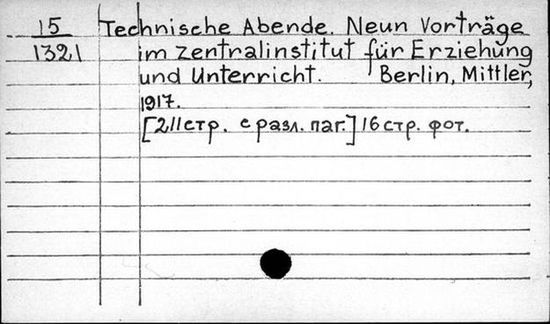 15 Technische Abende. Neun Vorträge
1321 im Zentralinstitut für Erziehung
und Unterricht. Berlin, Mittler,
1917.
[211стр. с разл. паг.] 16 стр. фот.